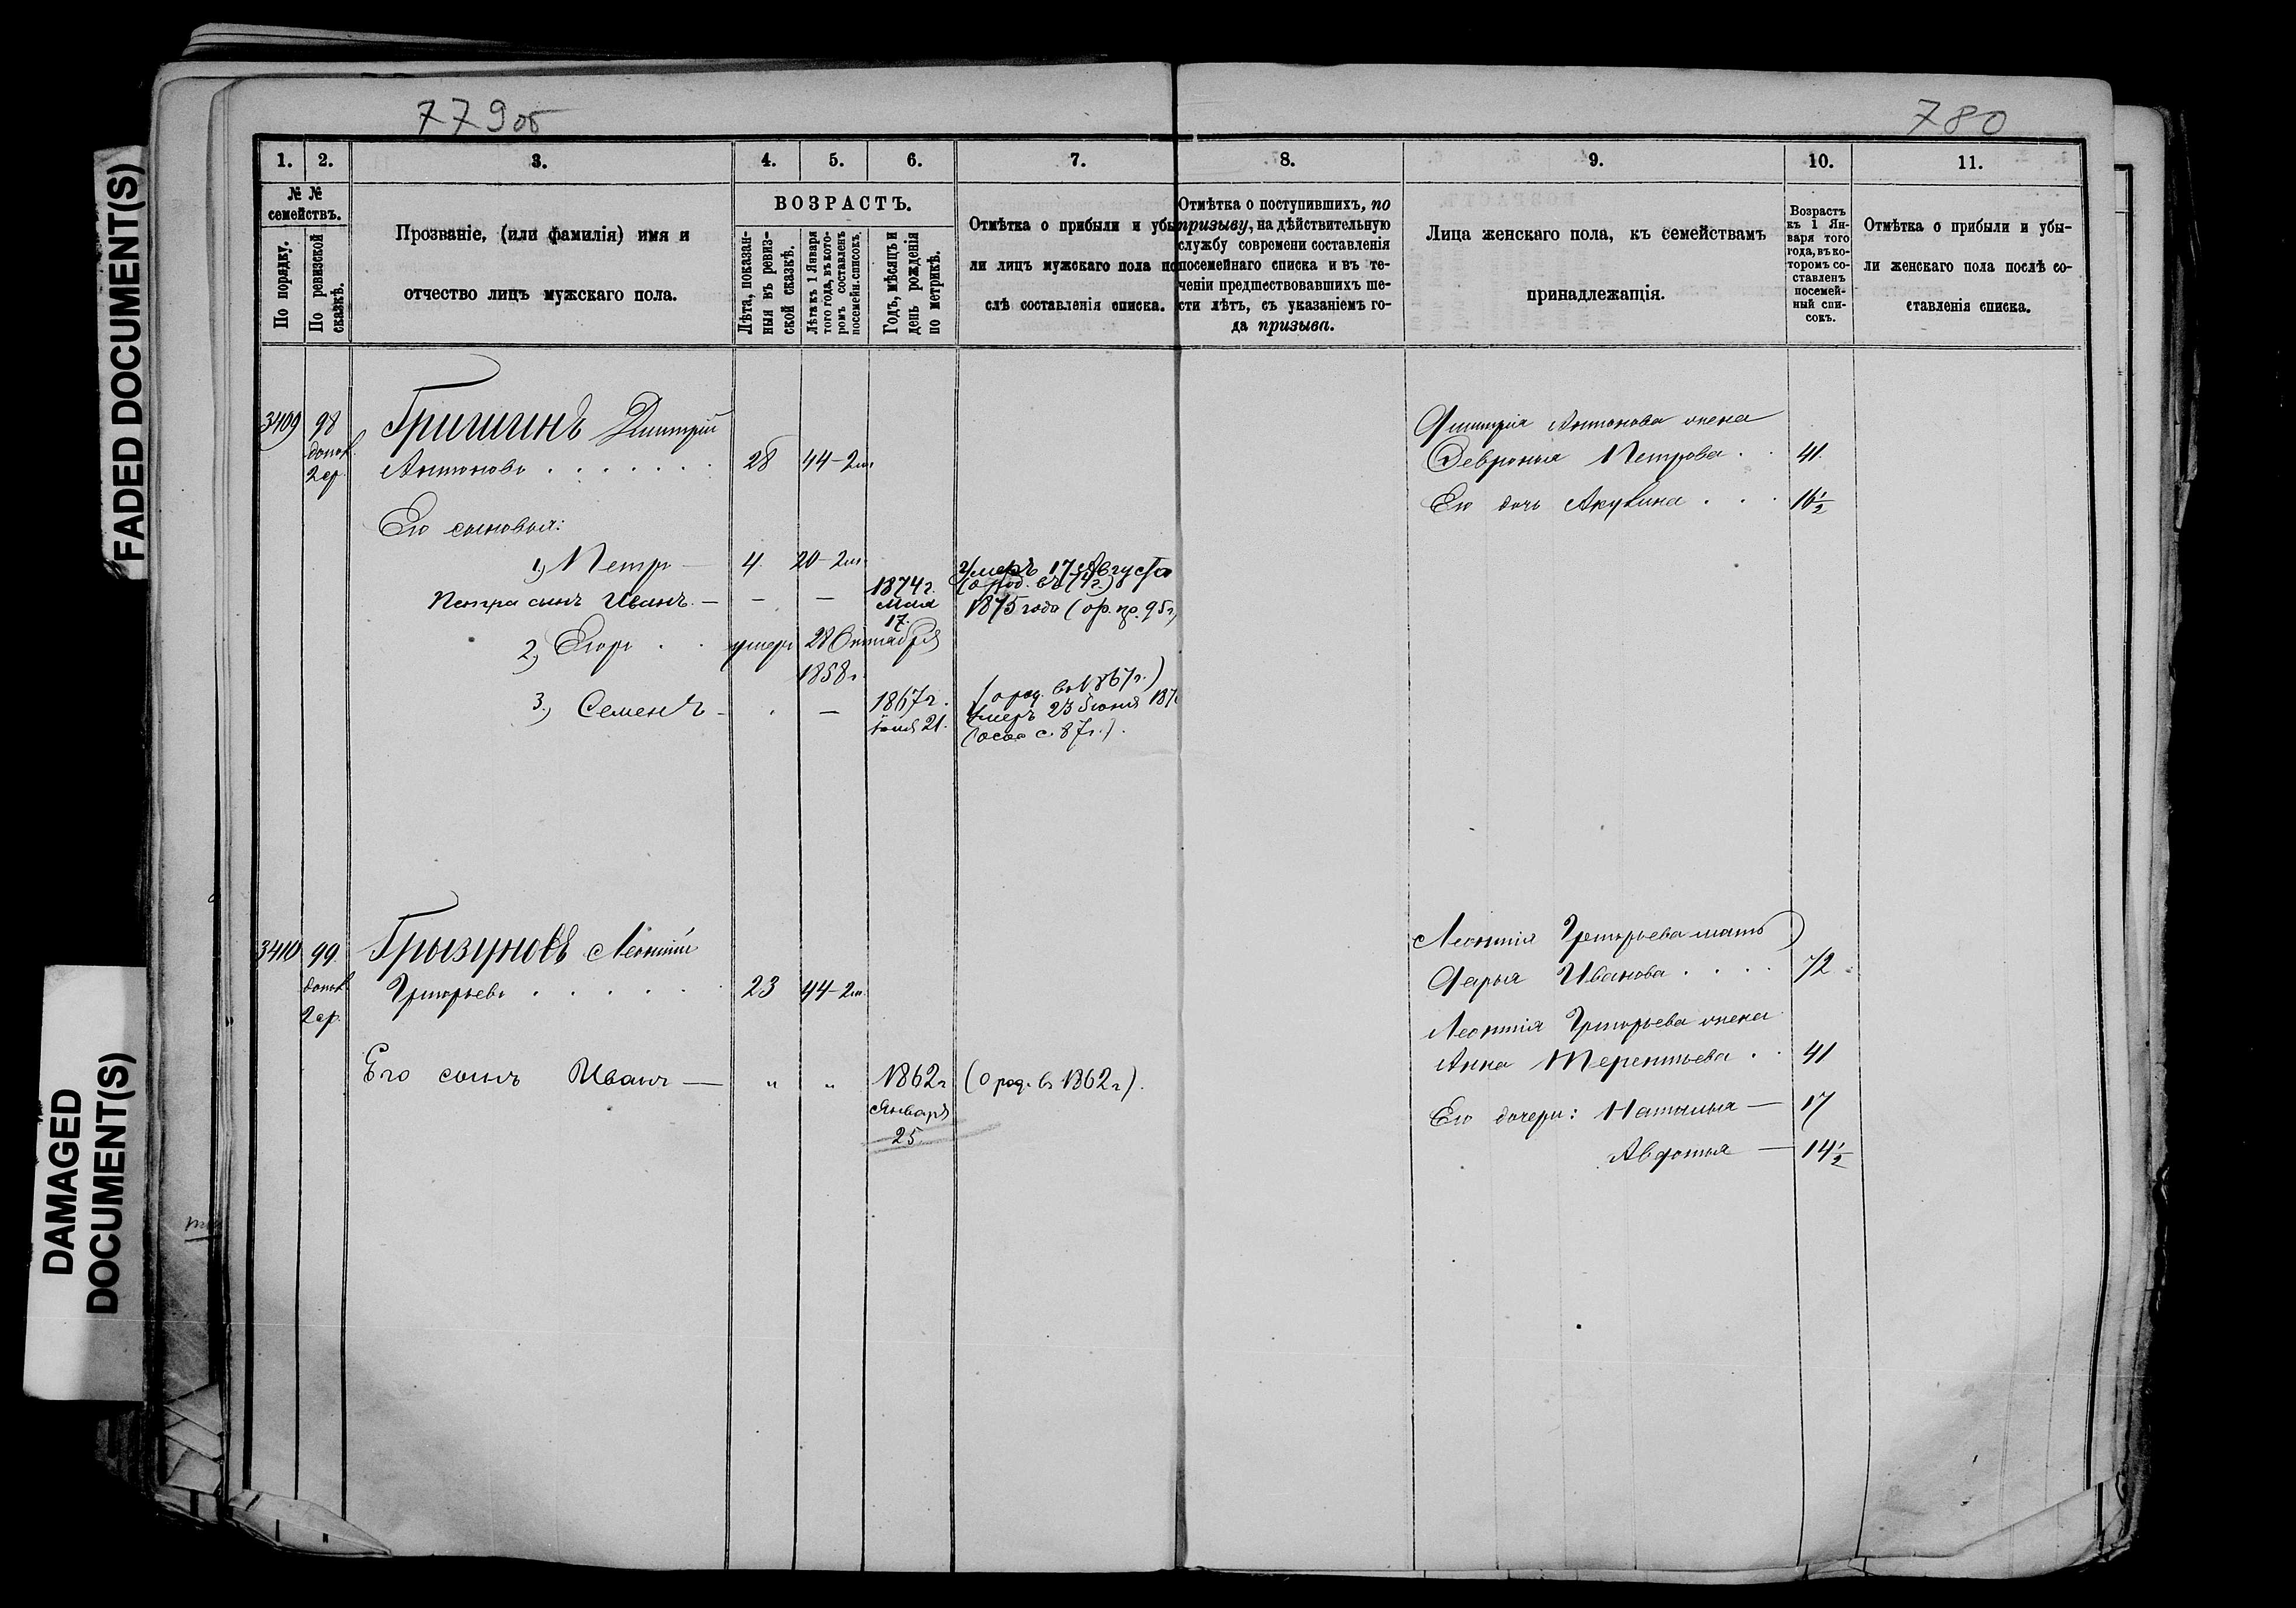 FADED DOCUMENT(S)
DAMAGED
DOCUMENT(S)
779 об
780
1. 2. 3. 4. 5. 6. 7. 8. 9. 10. 11.
№ №
семействъ.
По порядку.
По ревизской
сказкѣ.
Прозваніе, (или фамилія) имя и
отчество лицъ мужскаго пола.
ВОЗРАСТЪ.
Лѣта, показан-
ныя въ ревиз-
ской сказкѣ.
Лѣта къ 1 Января
того года, въ кото-
ромъ составленъ
посемейн. списокъ.
Годъ, мѣсяцъ и
день рожденія
по метрикѣ.
Отмѣтка о прибыли и убы-
ли лицъ мужскаго пола по-
слѣ составленія списка.
Отмѣтка о поступившихъ, по
призыву, на дѣйствительную
службу современи составленія
посемейнаго списка и въ те-
ченіи предшествовавшихъ ше-
сти лѣтъ, съ указаніемъ го-
да призыва.
Лица женскаго пола, къ семействамъ
принадлежащія.
Возрастъ
къ 1 Ян-
варя того
года, въ ко-
торомъ со-
ставленъ
посемей-
ный спи-
сокъ.
Отмѣтка о прибыли и убы-
ли женскаго пола послѣ со-
ставленія списка.
3409 98 Гришинъ Дмитрій
2 ср. Антоновъ 28 44-2м
Его сыновья:
1.) Петръ — 4. 20-2м
Петра сынъ Иванъ. — — — 1874 г. Мая 17.
Умеръ 17 Августа
(о род. въ 74 г.)
1875 года
2.) Егоръ умеръ 28 Октября
1858 г.
3.) Семенъ — — 1867 г. 21.
(о род. въ 1867 г.)
Умеръ 23 Іюня
Дмитрія Антонова жена
Февронья Петрова 41
Его дочь Акулина 16 1/2
3410 99 Грызуновъ Леонтій
2 ср. Григорьевъ 23 44-2м.
Его сынъ Иванъ — " " 1862 г (о род. въ 1862 г.).
Января
25
Леонтія Григорьева мать
Дарья Иванова 72
Леонтія Григорьева жена
Анна Терентьева 41
Его дочери: Наталья — 17
Авдотья — 14 1/2